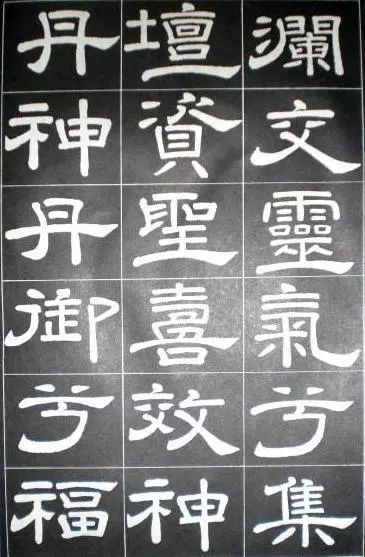 瀾文靈氣兮集
壇資聖喜效神
丹神丹御兮福